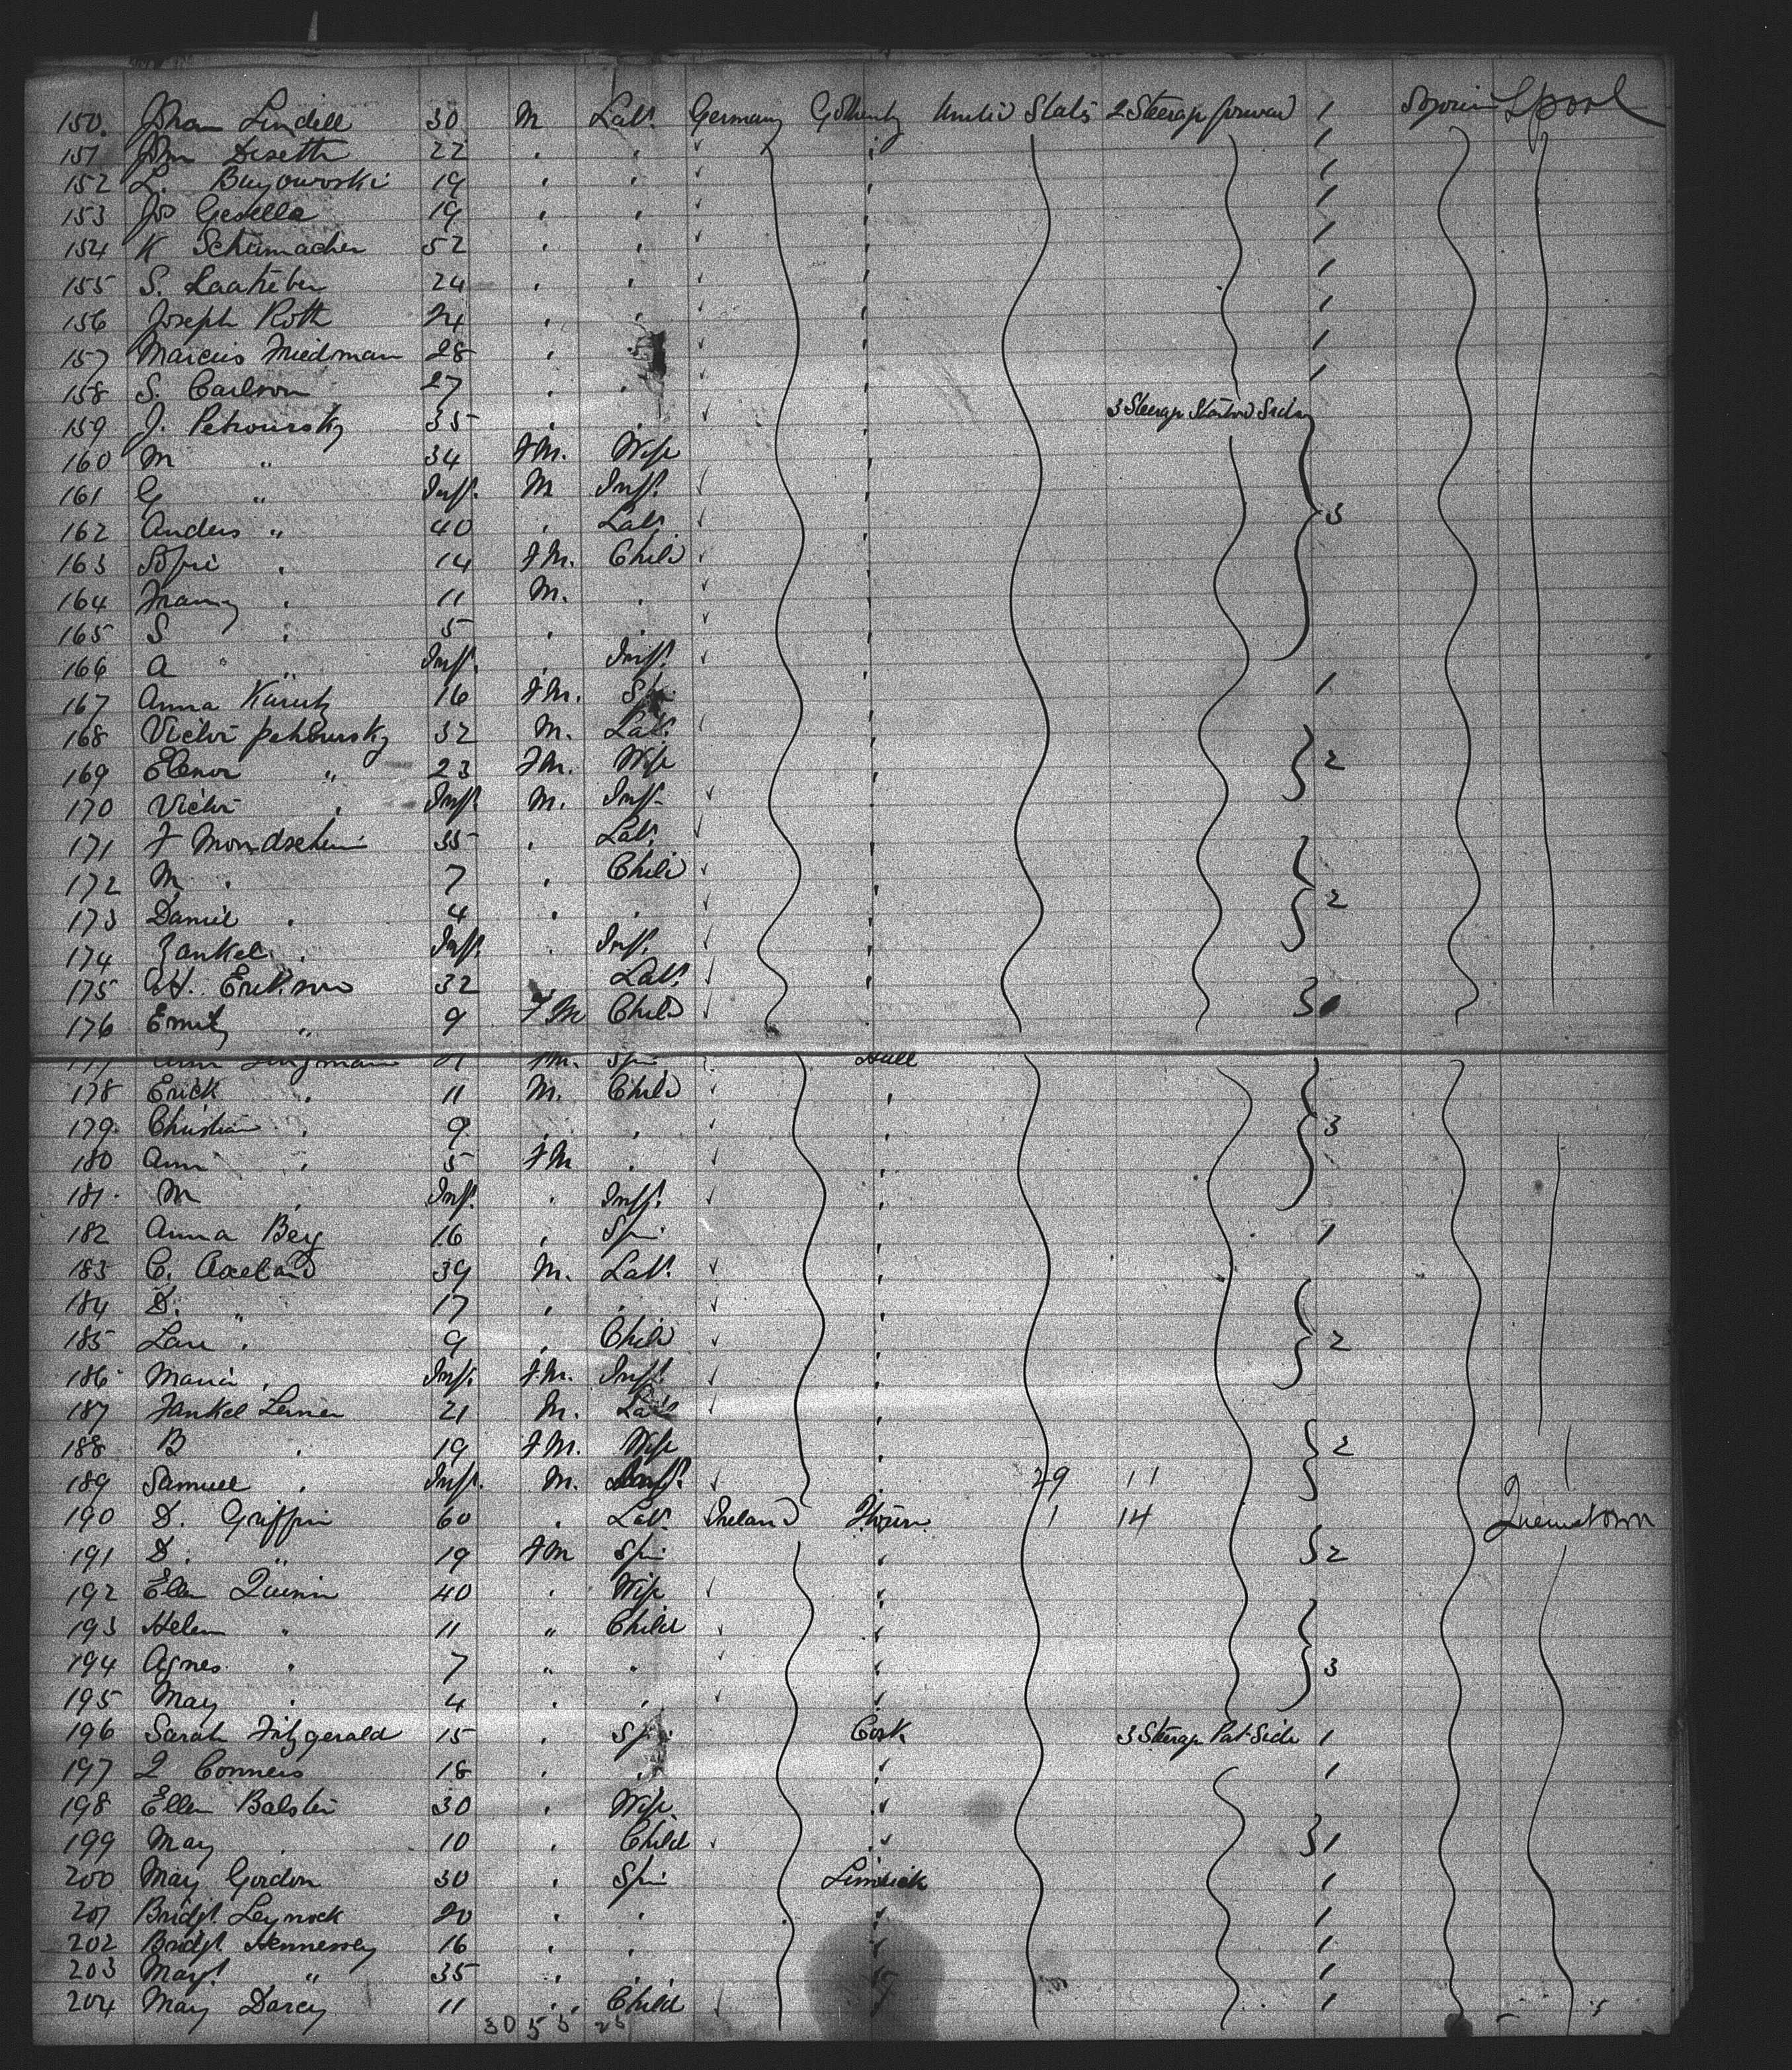 150. Johan Lindell 30 M Lab. Germany Gothenbg United States 2 Steerage forward 1 Sojourn Lpool
151 John Disetti 22 " " 1
152 L. Buyowoski 19 " " 1
153 Jos Gesella 19 " " 1
154 K Schumacher 52 " " 1
155 S. Laatiben 24 " " 1
156 Joseph Roth 24 " " 1
157 Marcus Friedman 28 " 1
158 S. Carlson 27 " " 1
159 J. Petroursky 35 " " 3 Steerage Starbord Side
160 M " 34 FM. Wife
161 G " Inft. M Inft.
162 Anders " 40 " Lab. 3
163 Sofie " 14 FM. Child
164 Franz " 11 M. "
165 S " 5 " "
166 A " Inft. " Inft.
167 Anna 16 FM. Sp. 1
168 Victor petroursky 32 M. Lab.
169 Elenor " 23 FM. Wife 2
170 Victor " Inft. M. Inft.
171 F Mondschein 35 " Lab.
172 M " 7 " Child
173 Daniel " 4 " " 2
174 Yankel " Inft. " Inft.
175 Erikson 32 " Lab.
176 Emily " 9 FM Child
177 Ann 31 FM. Spin Hull
178 Erick " 11 M. Child "
179. Christian " 9 " " " 3
180 Ann " 5 FM " "
181. M " Inft. " Inft. "
182 Anna Berg 16 " Spin " 1
183 C. Axeland 39 M. Lab. "
184 D. " 17 " " "
185 Lars " 9 " Child " 2
186 Maria " Inft. FM. Inft. "
187 Yankel Lerner 21 M. Lab "
188 B " 19 FM. Wife " 2
189 Samuel " Inft. M. Inft. 29 11
190 D. Griffin 60 " Lab. Ireland 1 14 Queenstown
191 D. " 19 FM Spin " 2
192 Ellen Quinn 40 " Wife "
193 Helen " 11 " Child "
194 Agnes " 7 " " " 3
195 May " 4 " " "
196 Sarah Fitzgerald 15 " Spin Cork 3 Steerage Port Side 1
197 Conners 18 " " " 1
198 Ellen Balster 30 " Wife "
199 May " 10 " Child " 1
200 May Gordon 30 " Spin Limrick 1
201 Bridgt. Leynock 20 " " " 1
202 Bridgt. Hennessey 16 " " " 1
203 Margt. " 35 " " " 1
204 May Darcy 11 " Child " 1
30 5 5 25